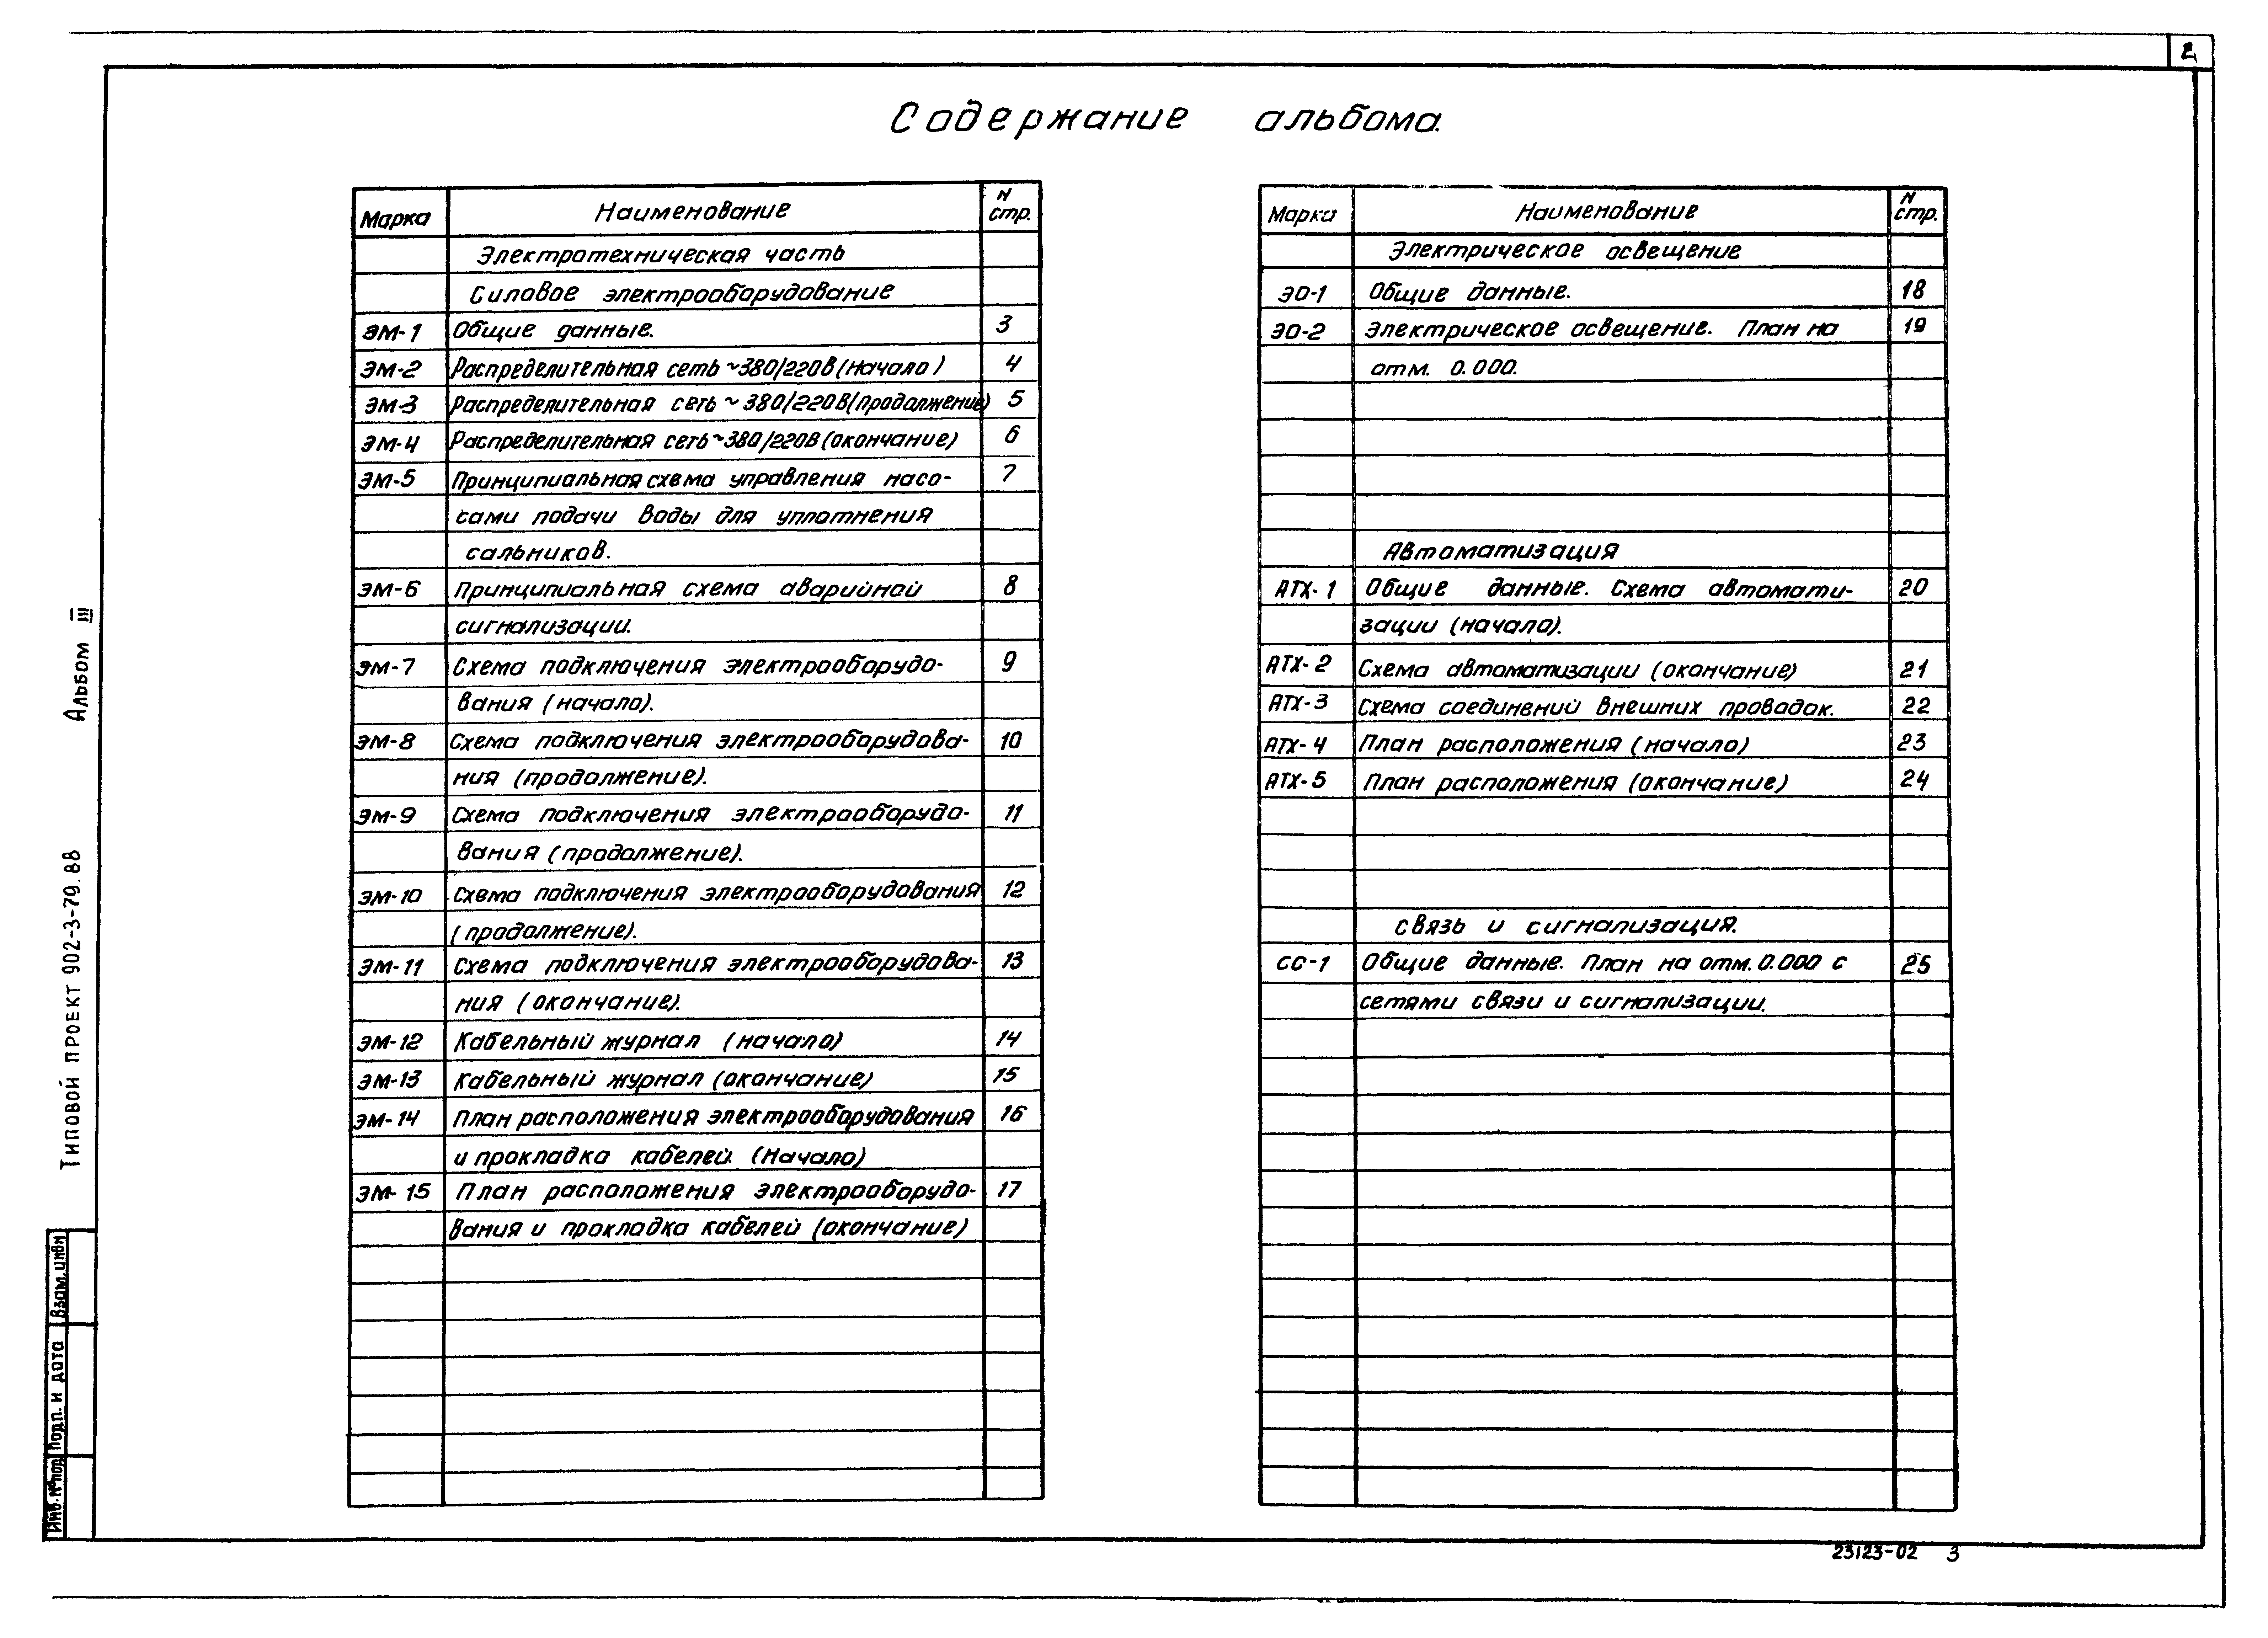 2
Содержание альбома
Марка Наименование N стр.
Электротехническая часть
Силовое электрооборудование
ЭМ-1 Общие данные. 3
ЭМ-2 Распределительная сеть ~380/220В (Начало) 4
ЭМ-3 Распределительная сеть ~380/220В (продолжение) 5
ЭМ-4 Распределительная сеть ~380/220В (окончание) 6
ЭМ-5 Принципиальная схема управления насо- 7
сами подачи воды для уплотнения
сальников.
ЭМ-6 Принципиальная схема аварийной 8
сигнализации.
ЭМ-7 Схема подключения электрооборудо- 9
вания (начало).
ЭМ-8 Схема подключения электрооборудова- 10
ния (продолжение).
ЭМ-9 Схема подключения электрооборудо- 11
вания (продолжение).
ЭМ-10 Схема подключения электрооборудования 12
(продолжение).
ЭМ-11 Схема подключения электрооборудова- 13
ния (окончание).
ЭМ-12 Кабельный журнал (начало) 14
ЭМ-13 Кабельный журнал (окончание) 15
ЭМ-14 План расположения электрооборудования 16
и прокладка кабелей. (Начало)
ЭМ-15 План расположения электрооборудо- 17
вания и прокладка кабелей (окончание)
Марка Наименование N стр.
Электрическое освещение
ЭО-1 Общие данные. 18
ЭО-2 Электрическое освещение. План на 19
отм. 0.000.
Автоматизация
АТХ-1 Общие данные. Схема автомати- 20
зации (начало).
АТХ-2 Схема автоматизации (окончание) 21
АТХ-3 Схема соединений внешних проводок. 22
АТХ-4 План расположения (начало) 23
АТХ-5 План расположения (окончание) 24
связь и сигнализация.
СС-1 Общие данные. План на отм. 0.000 с 25
сетями связи и сигнализации.
Типовой проект 902-3-79.88 Альбом III
Инв. № под Подп. и дата Взам. инв N
23123-02 3